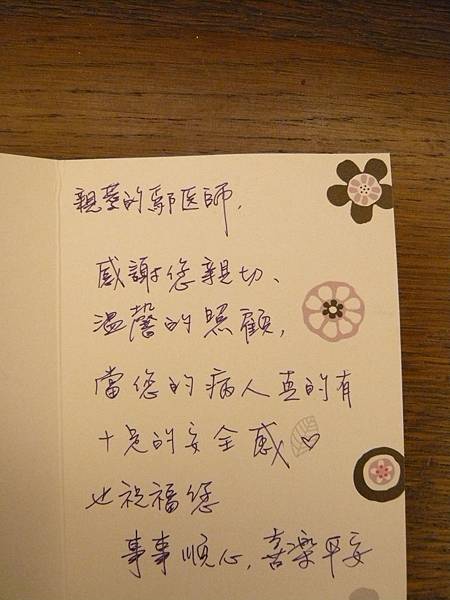 親愛的鄒医師,
感謝您親切、
溫馨的照顧,
當您的病人真的有
十足的安全感♡
也祝福您
事事順心,喜樂平安